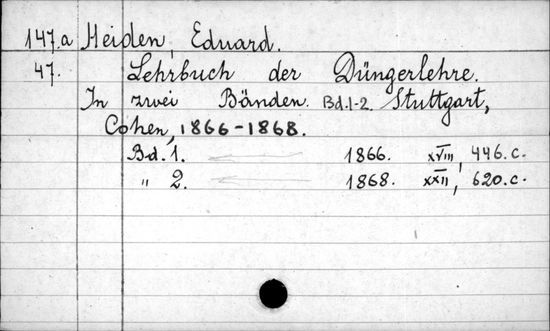 147.a Heiden, Eduard.
47. Lehrbuch der Düngerlehre.
In zwei Bänden. Bd.1-2. Stuttgart,
Cohen, 1866-1868.
Bd. 1. 1866. XVIII, 446.c.
" 2. 1868. XXII, 620.c.